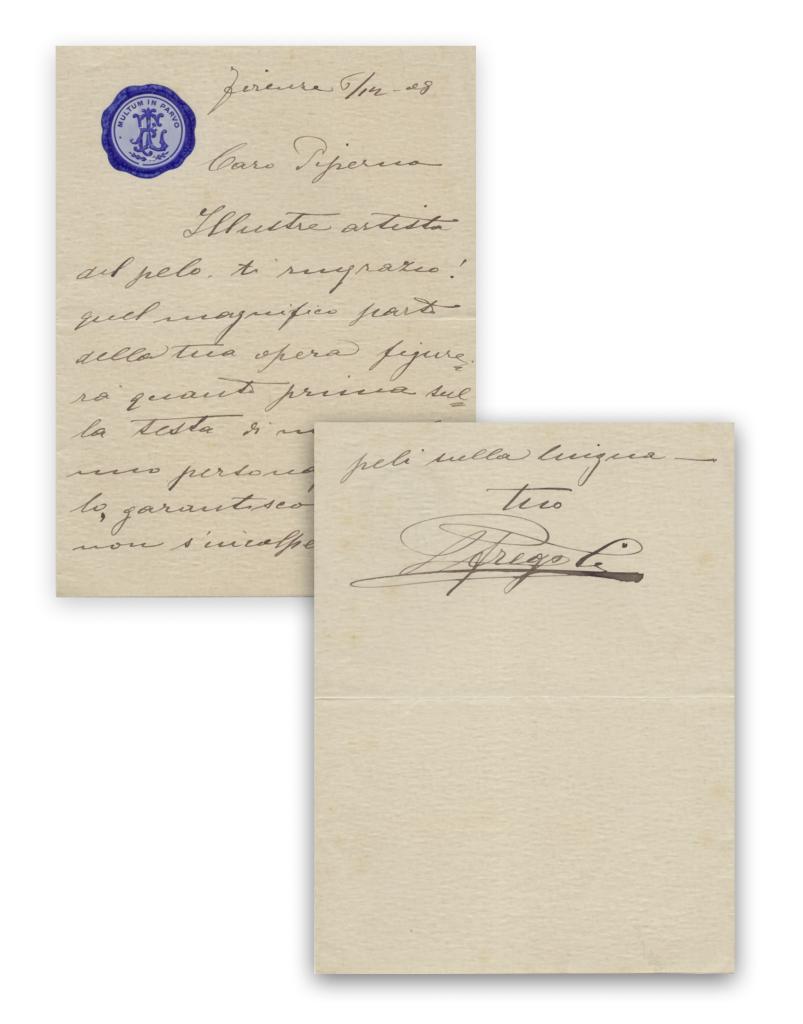 MULTUM IN PARVO
Firenze 5/12-08
Caro Piperno
Illustre artista
del pelo. ti ringrazio!
quel magnifico parto
della tua opera figure=
rà quanto prima sul=
la testa di
mio person
lo, garantisco
non s'incolpe
peli sulla lingua —
tuo
LFregoli